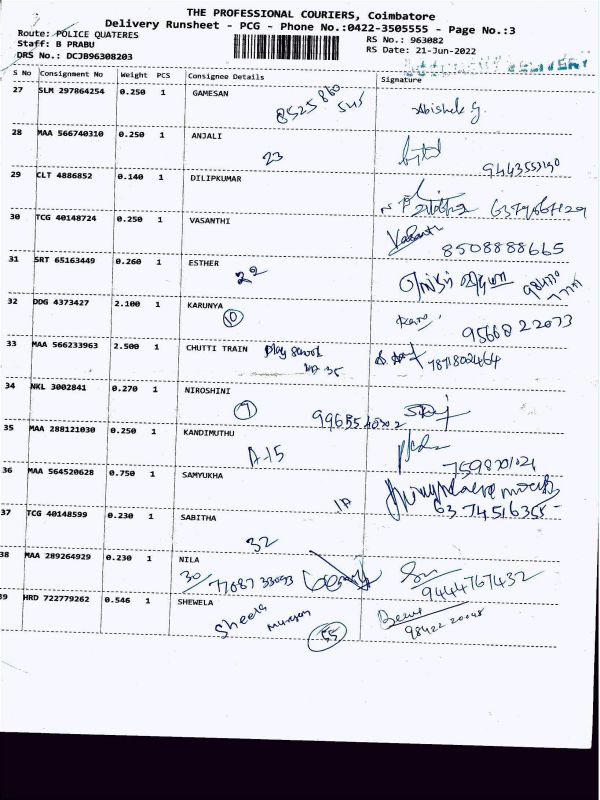 THE PROFESSIONAL COURIERS, Coimbatore
Delivery Runsheet - PCG - Phone No.:0422-3505555 - Page No.:3
Route: POLICE QUATERES RS No.: 963082
Staff: B PRABU RS Date: 21-Jun-2022
DRS No.: DCJB96308203
S No Consignment No Weight PCS Consignee Details Signature
27 SLM 297864254 0.250 1 GAMESAN
8525 860 545 Abishek G.
28 MAA 566740310 0.250 1 ANJALI
23
29 CLT 4886852 0.140 1 DILIPKUMAR
30 TCG 40148724 0.250 1 VASANTHI Vasanthi
8508888665
31 SRT 65163449 0.260 1 ESTHER
22
32 DDG 4373427 2.100 1 KARUNYA
10 95668 22073
33 MAA 566233963 2.500 1 CHUTTI TRAIN Play School
35 7871802464
34 NKL 3002841 0.270 1 NIROSHINI
7
35 MAA 288121030 0.250 1 KANDIMUTHU
A-15
36 MAA 564520628 0.750 1 SAMYUKHA
1A 63 74516355
37 TCG 40148599 0.230 1 SABITHA
32
38 MAA 289264929 0.230 1 NILA
30 9444767432
39 HRD 722779262 0.546 1 SHEWELA
Sheela Murugan 55 98422 20048